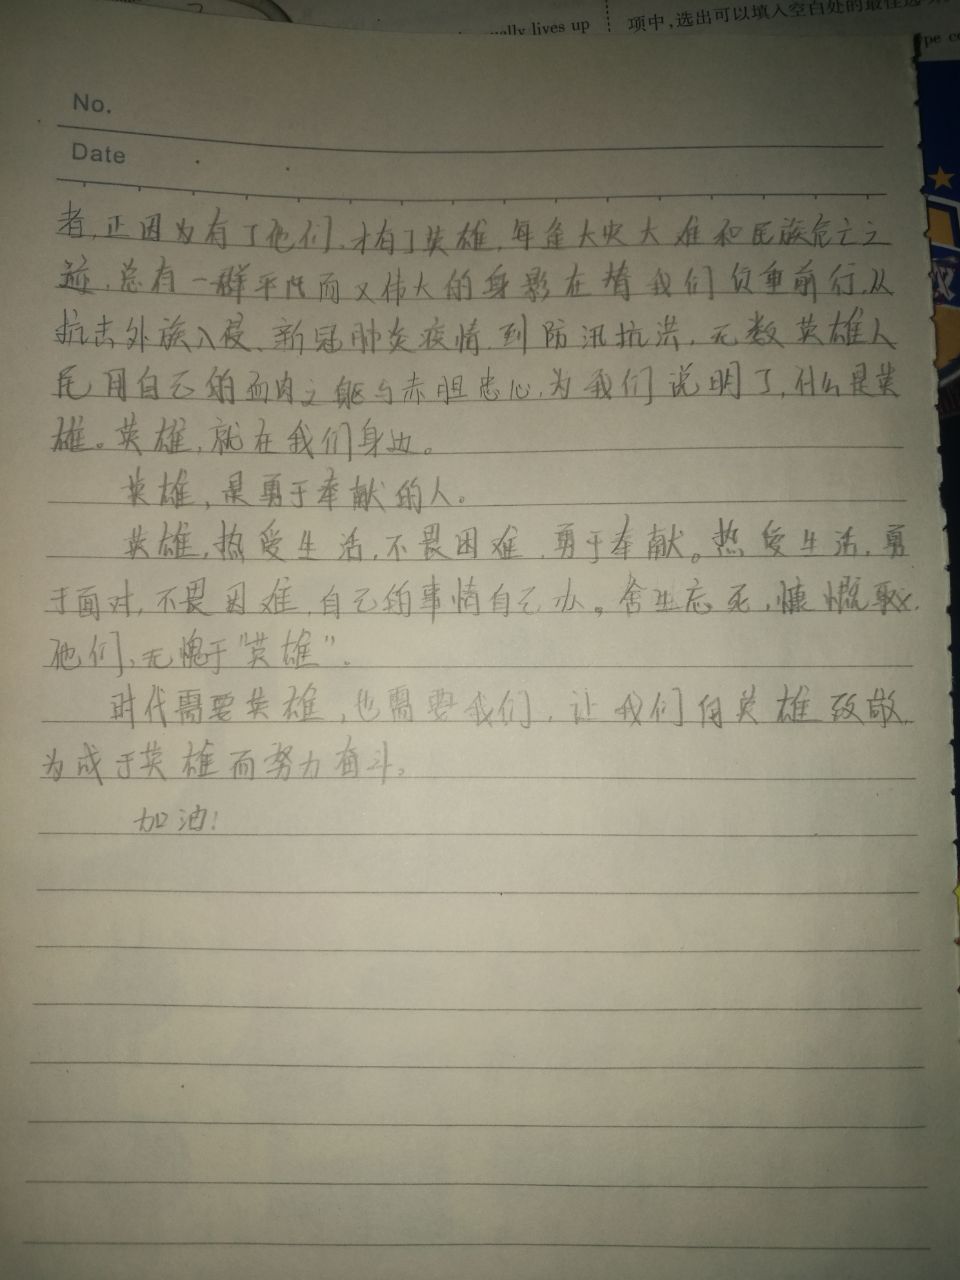 ually lives up
项中,选出可以填入空白处的最佳选项
pe co
No.
Date
者,正因为有了他们,才有了英雄,每逢大灾大难和民族危亡之
迹,总有一群平凡而又伟大的身影在替我们负重前行,从
抗击外族入侵、新冠肺炎疫情,到防汛抗洪,无数英雄人
民用自己的血肉之躯与赤胆忠心,为我们说明了,什么是英
雄。英雄,就在我们身边。
英雄,是勇于奉献的人。
英雄,热爱生活,不畏困难,勇于奉献。热爱生活,勇
于面对,不畏困难,自己的事情自己办。舍生忘死,慷慨
他们,无愧于“英雄”.
时代需要英雄,也需要我们,让我们向英雄致敬,
为成于英雄而努力奋斗。
加油!